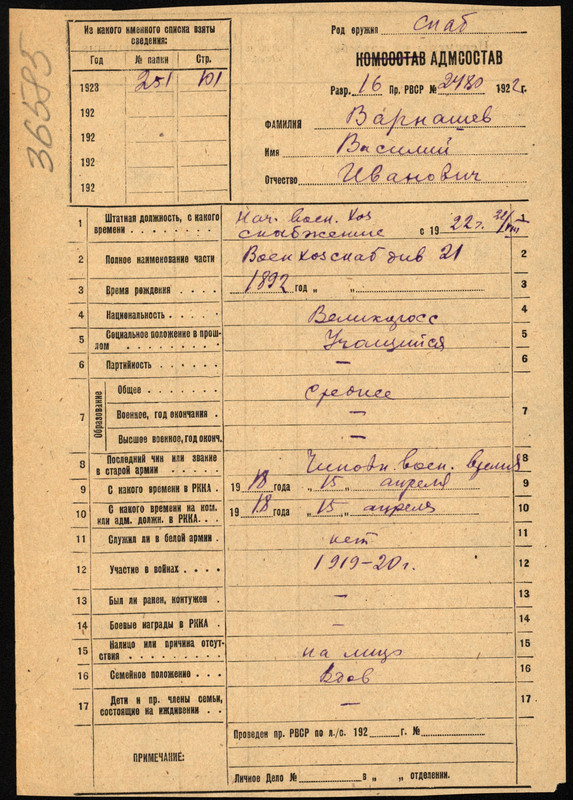 36585
Из какого именного списка взяты
сведения:
Год № папки Стр.
1923 251 101
192
192
192
192
Род оружия Снаб
КОМСОСТАВ АДМСОСТАВ
Разр. 16 Пр. РВСР № 2480 1922 г.
ФАМИЛИЯ Варнашев
Имя Василий
Отчество Иванович
1 Штатная должность, с какого времени Нач. воен. хоз
снабжение с 19 22 г.
2 Полное наименование части Военхозснаб див 21 2
3 Время рождения 1892 год „ „ 3
4 Национальность Великоросс 4
5 Социальное положение в прошлом Учащийся 5
6 Партийность — 6
7 Образование
Общее среднее
Военное, год окончания — 7
Высшее военное, год оконч. —
8 Последний чин или звание в старой армии Чиновн. воен. время 8
9 С какого времени в РККА 19 18 года „ 15 „ апреля 9
10 С какого времени на ком. или адм. должн. в РККА. 19 18 года „ 15 „ апреля 10
11 Служил ли в белой армии нет 11
12 Участие в войнах 1919–20 г. 12
13 Был ли ранен, контужен — 13
14 Боевые награды в РККА — 14
15 Налицо или причина отсутствия на лицо 15
16 Семейное положение Вдов 16
17 Дети и пр. члены семьи, состоящие на иждивении — 17
ПРИМЕЧАНИЕ:
Проведен пр. РВСР по л./с. 192 г. №
Личное Дело № в „ „ отделении.